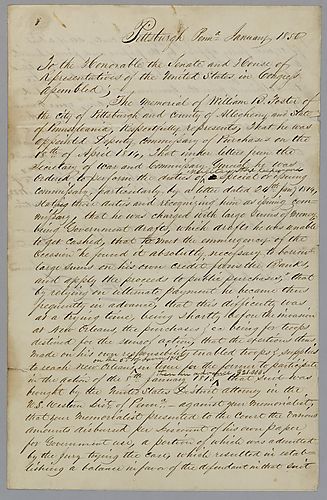 Pittsburgh Penna. January, 1850
To the Honorable the Senate and House of
Representatives of the United States in Congress
Assembled;
The Memorial of William B. Foster of
the City of Pittsburgh and County of Allegheny and State
of Pennsylvania, Respectfully represents, That he was
appointed Deputy Commissary of Purchases on the
of April 1814, That under letters from the
Secretary of War and Commissary General he was
ordered to perform the duties of issuing
Commissary, particularly by a letter dated 1814,
stating these duties and recognizing him as issuing Com-
missary, that he was charged with large sums of money
being Government drafts, which drafts he was unable
to get cashed, that to meet the emmergency of the
Occasion he found it absolutely necessary to borrow
large sums on his own credit from the Banks
and apply the proceeds to public purchases, that
by relying on ultimate payment he became thus
frequently in advance, that this difficulty was
at a trying time, being shortly before the invasion
at New Orleans, the purchases, &c being for troops
destined for the scene of action, that the operations thus
made on his own responsibility enabled troops & supplies
to reach New Orleans in time for the former to participate
in the action of the 8th January 1815, that suit was
brought by the United States District Attorney in the
U.S. Western Dist. of Penn. against your Memorialist,
that your Memorialist presented to the Court the various
amounts disbursed per discount of his own paper
for Government use, a portion of which was admitted
by the jury trying the case, which resulted in estab-
lishing a balance in favor of the defendant in that suit